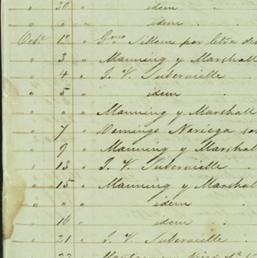 " 30 " idem
Octe 1º " Gmo Sillem por letra de
" 3 " Manning y Marshall
" 4 " J. V. Suberville
" 5 " idem
" " " Manning y Marshall
" 7 " Domingo Noriega
" 9 " Manning y Marshal
" 13 " J. V. Suberville
" 15 " Manning y Marshal
" " " idem
" 16 " idem
" 21 " J. V. Suberville
" 22 "